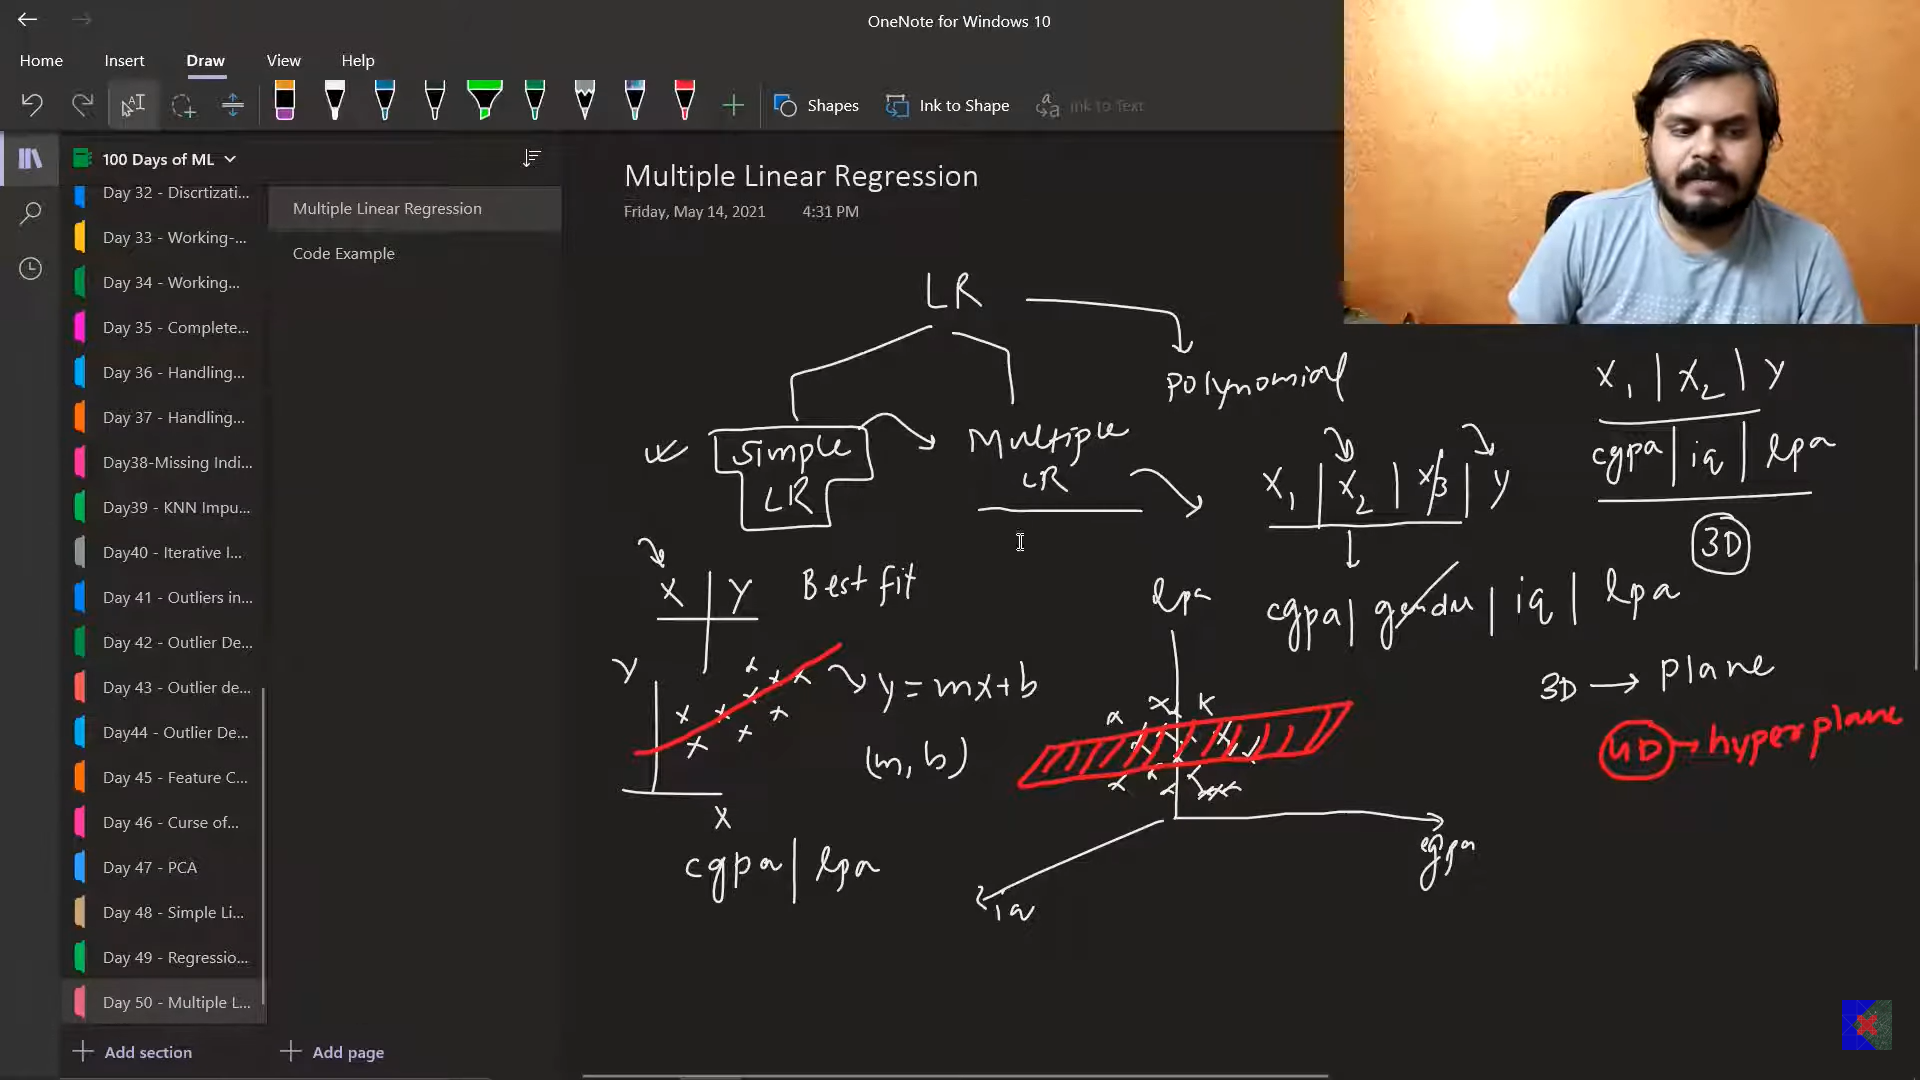 OneNote for Windows 10
Home Insert Draw View Help
Shapes Ink to Shape Ink to Text
100 Days of ML
Day 32 - Discrtizati...
Day 33 - Working-...
Day 34 - Working...
Day 35 - Complete...
Day 36 - Handling...
Day 37 - Handling...
Day38-Missing Indi...
Day39 - KNN Impu...
Day40 - Iterative I...
Day 41 - Outliers in...
Day 42 - Outlier De...
Day 43 - Outlier de...
Day44 - Outlier De...
Day 45 - Feature C...
Day 46 - Curse of...
Day 47 - PCA
Day 48 - Simple Li...
Day 49 - Regressio...
Day 50 - Multiple L...
Add section
Multiple Linear Regression
Code Example
Add page
Multiple Linear Regression
Friday, May 14, 2021 4:31 PM
LR
Polynomial
Simple
LR
Multiple
LR
X1 | X2 | X3 | Y
X1 | X2 | Y
cgpa | iq | lpa
3D
X | Y
Best fit
lpa
cgpa | gender | iq | lpa
Y
y = mx+b
3D → Plane
(m, b)
4D → hyperplane
X
cgpa
cgpa | lpa
iq